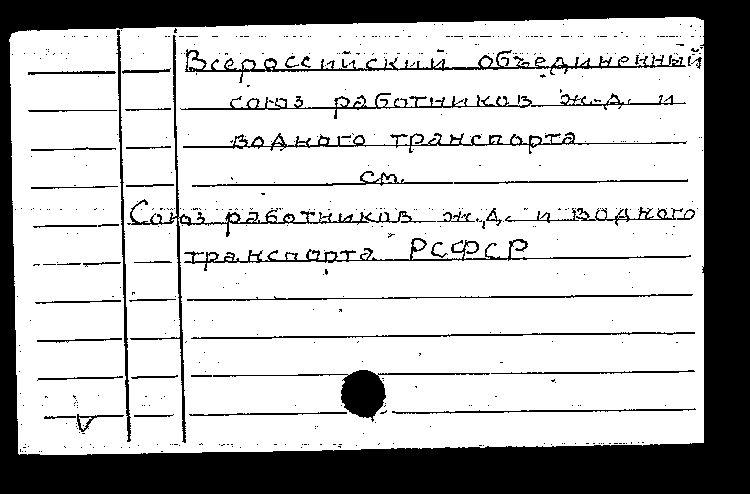 Всероссийский объединенный
союз работников ж.-д. и
водного транспорта
см.
Союз работников ж.д. и водного
транспорта РСФСР